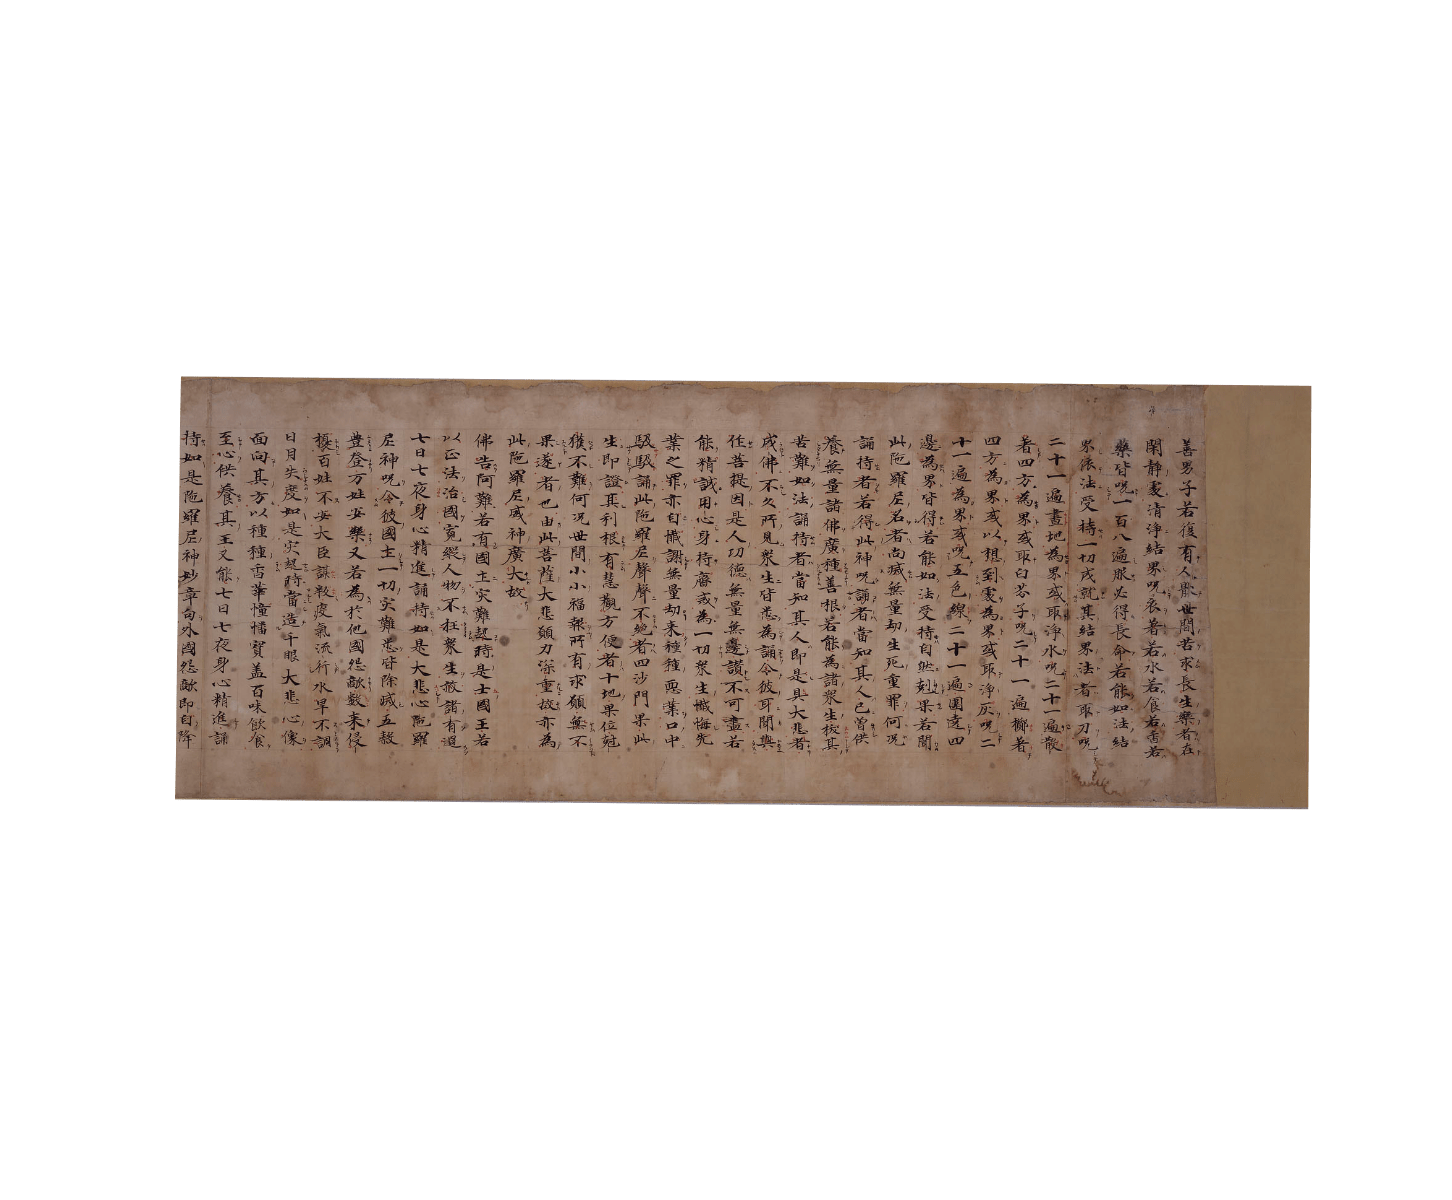 善男子若復有人猒世間苦求長生樂者在
閑靜處清淨結界呪衣著若水若食若香若
藥皆呪一百八遍服必得長命若能如法結
界依法受持一切成就其結界法者取刀呪
二十一遍畫地為界或取淨水呪二十一遍散
著四方為界或取白芥子呪二十一遍擲著
四方為界或以想到處為界或取淨灰呪二
十一遍為界或呪五色線二十一遍圍遶四
邊為界皆得若能如法受持自然剋果若聞
此陁羅尼名者尚滅無量劫生死重罪何況
誦持者若得此神呪誦者當知其人已曾供
養無量諸佛廣種善根若能為諸眾生拔其
苦難如法誦持者當知其人即是具大悲者
成佛不久所見眾生皆悉為誦令彼耳聞與
任菩提因是人功德無量無邊讚不可盡若
能精誠用心身持齋戒為一切眾生懺悔先
業之罪亦自懺謝無量劫来種種惡業口中
馺馺誦此陁羅尼聲聲不絕者四沙門果此
生即證其利根有慧觀方便者十地果位剋
獲不難何況世間小小福報所有求願無不
果遂者也由此菩薩大悲願力深重故亦為
此陁羅尼威神廣大故
佛告阿難若有國土灾難起時是土國王若
以正法治國寬縱人物不枉眾生赦諸有過
七日七夜身心精進誦持如是大悲心陁羅
尼神呪令彼國土一切灾難悉皆除滅五穀
豊登万姓安樂又若為於他國怨敵數来侵
擾百姓不安大臣謀叛疫氣流行水旱不調
日月失度如是灾起時當造千眼大悲心像
面向其方以種種香華幢幡寶盖百味飲食
至心供養其王又能七日七夜身心精進誦
持如是陁羅尼神妙章句外國怨敵即自降